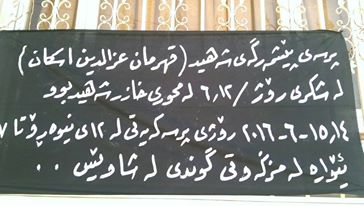 پرسەی پێشمەرگەی شەهید (قهرمان عزالدین اسکان)
لە لشکری رۆژ / ٦،١٢ لە محوری خازر شەهید بوو
١٥،١٤-٦-٢٠١٦ رۆژی پرسەکەیەتی لە ١٢ی نیوەڕۆ تا ٧
ئێوارە لە مزگەوتی گوندی لە شاوێس ..